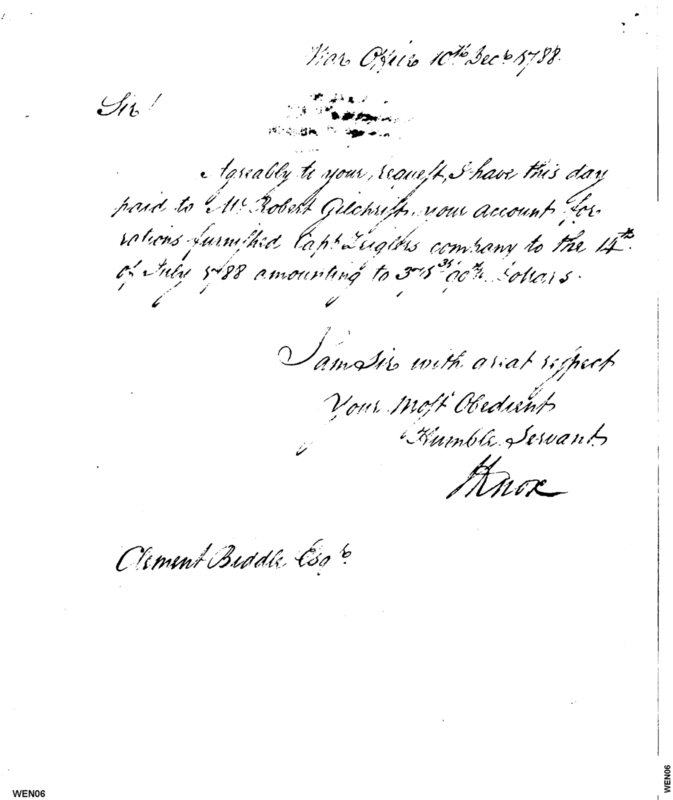 War Office 10th Decr 1788.
Sir!
Agreably to your request, I have this day
paid to Mr Robert Gilchrist, your account for
rations furnished Capt Zieglers company to the 14th
of July 1788 amounting to 90ths Dollars.
I am Sir with great respect
Your Most Obedient
Humble Servant
HKnox
Clement Biddle Esqr.
WEN06
WEN06